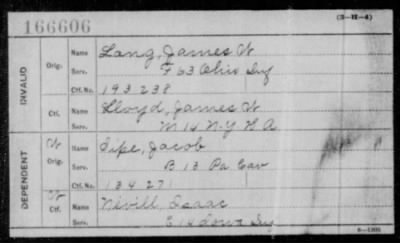 166606
(3-H-4)
INVALID
Orig.
Name Lang, James W
Serv. F 63 Ohio Inf
Ctf. No. 193238
Ctf.
Name Lloyd, James W
Serv. M 14 N-Y H A
DEPENDENT
Orig.
Name Sipe, Jacob
Serv. B 13 Pa Cav
Ctf. No. 13427
Ctf.
Name Nevill, Isaac
Serv. E 14 Iowa Inf